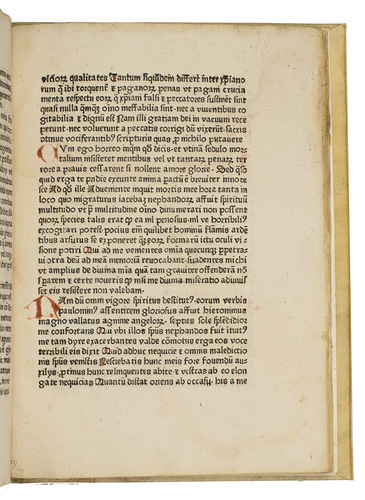 ulciorꝝ qualitates Tantum siquidem differt inter xp̄iano
rum q̄ ibi torquent̄ ⁊ paganorꝝ penas vt pagani crucia
menta respectu eorꝝ q̄ xp̄iani falsi ⁊ peccatores sustinēt sint
quasi nulla qmq̄z oīno ineffabilia sint ⁊ nec a viuentibus co
gitabilia ⁊ dignū est Nam illi gratiam dei in vacuum rece
perunt nec voluerunt a peccatis corrigi dū vixerūt sacris
otinue vociferantibꝰ scripturis quas ꝓ nichilo putauere
Cum ego horreo inqm q̄d dicis et vtinā sedulo mor
talium insisteret mentibus vel vt tantarꝝ penarꝝ ter
rore a prauis cessarent si nollent amore glorie Sed q̄so
quid erga te ꝑdie exeunte anima pactū ē breuiter innote
sce Ad q̄d ille Adueniente inquit mortis mee hora tanta in
loco quo migraturus iacebaꝫ nephandorꝝ affuit spirituū
multitudo vt ꝓ multitudine oīno dinumerari non possent
quorꝝ species talis erat
excogitari potest pocius em̄ quilibet hominū flāmis ardē
tibus arsurus se exponeret q̄z eorꝝ formarū ictu oculi vi
sione potiri Qui ad me venientes omīa quecunqꝫ ꝑpetra
ui otra deū ad meā memoriā reuocabant suadentes michi
vt amplius de diuina mīa quā tam grauiter offenderā nō
sperarem ⁊ certe noueris q̄ nisi me diuina miseratio adiuuis
set eis resistere non valebam.
Nam dū omm̄ vigore spiritus destitutꝰ eorum verbis
paulominꝰ assentirem gloriosus affuit hieronimus
magno vallatus agmine angelorꝝ septies sole splēdidior
me confortans Qui vbi illos spūs nephandos fuit ituitꝰ
me tam dyre exacerbantes valde cōmotus erga eos voce
terribili eis dixit Quid adhuc nequicie ⁊ omnis maledictio
nis spūs venistis Nesciebatis hunc meis fore fouendū au
xilijs ꝓtinus hunc relinquentes abite ⁊ vestras ab eo elon
gate nequicias Quantū distat oriens ab occasu his a me